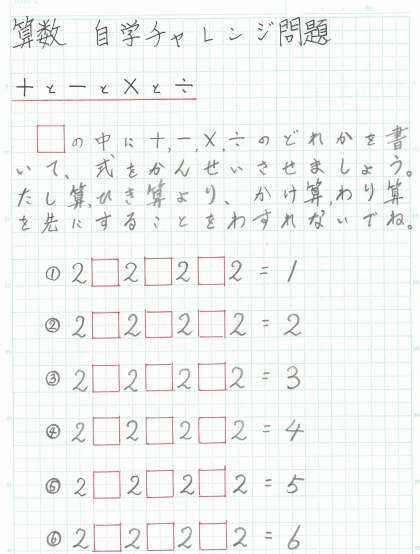 算数 自学チャレンジ問題
+と-と×と÷
□の中に+,-,×,÷のどれかを書
いて、式をかんせいさせましょう。
たし算,ひき算より、かけ算,わり算
を先にすることをわすれないでね。
① 2□2□2□2=1
② 2□2□2□2=2
③ 2□2□2□2=3
④ 2□2□2□2=4
⑤ 2□2□2□2=5
⑥ 2□2□2□2=6